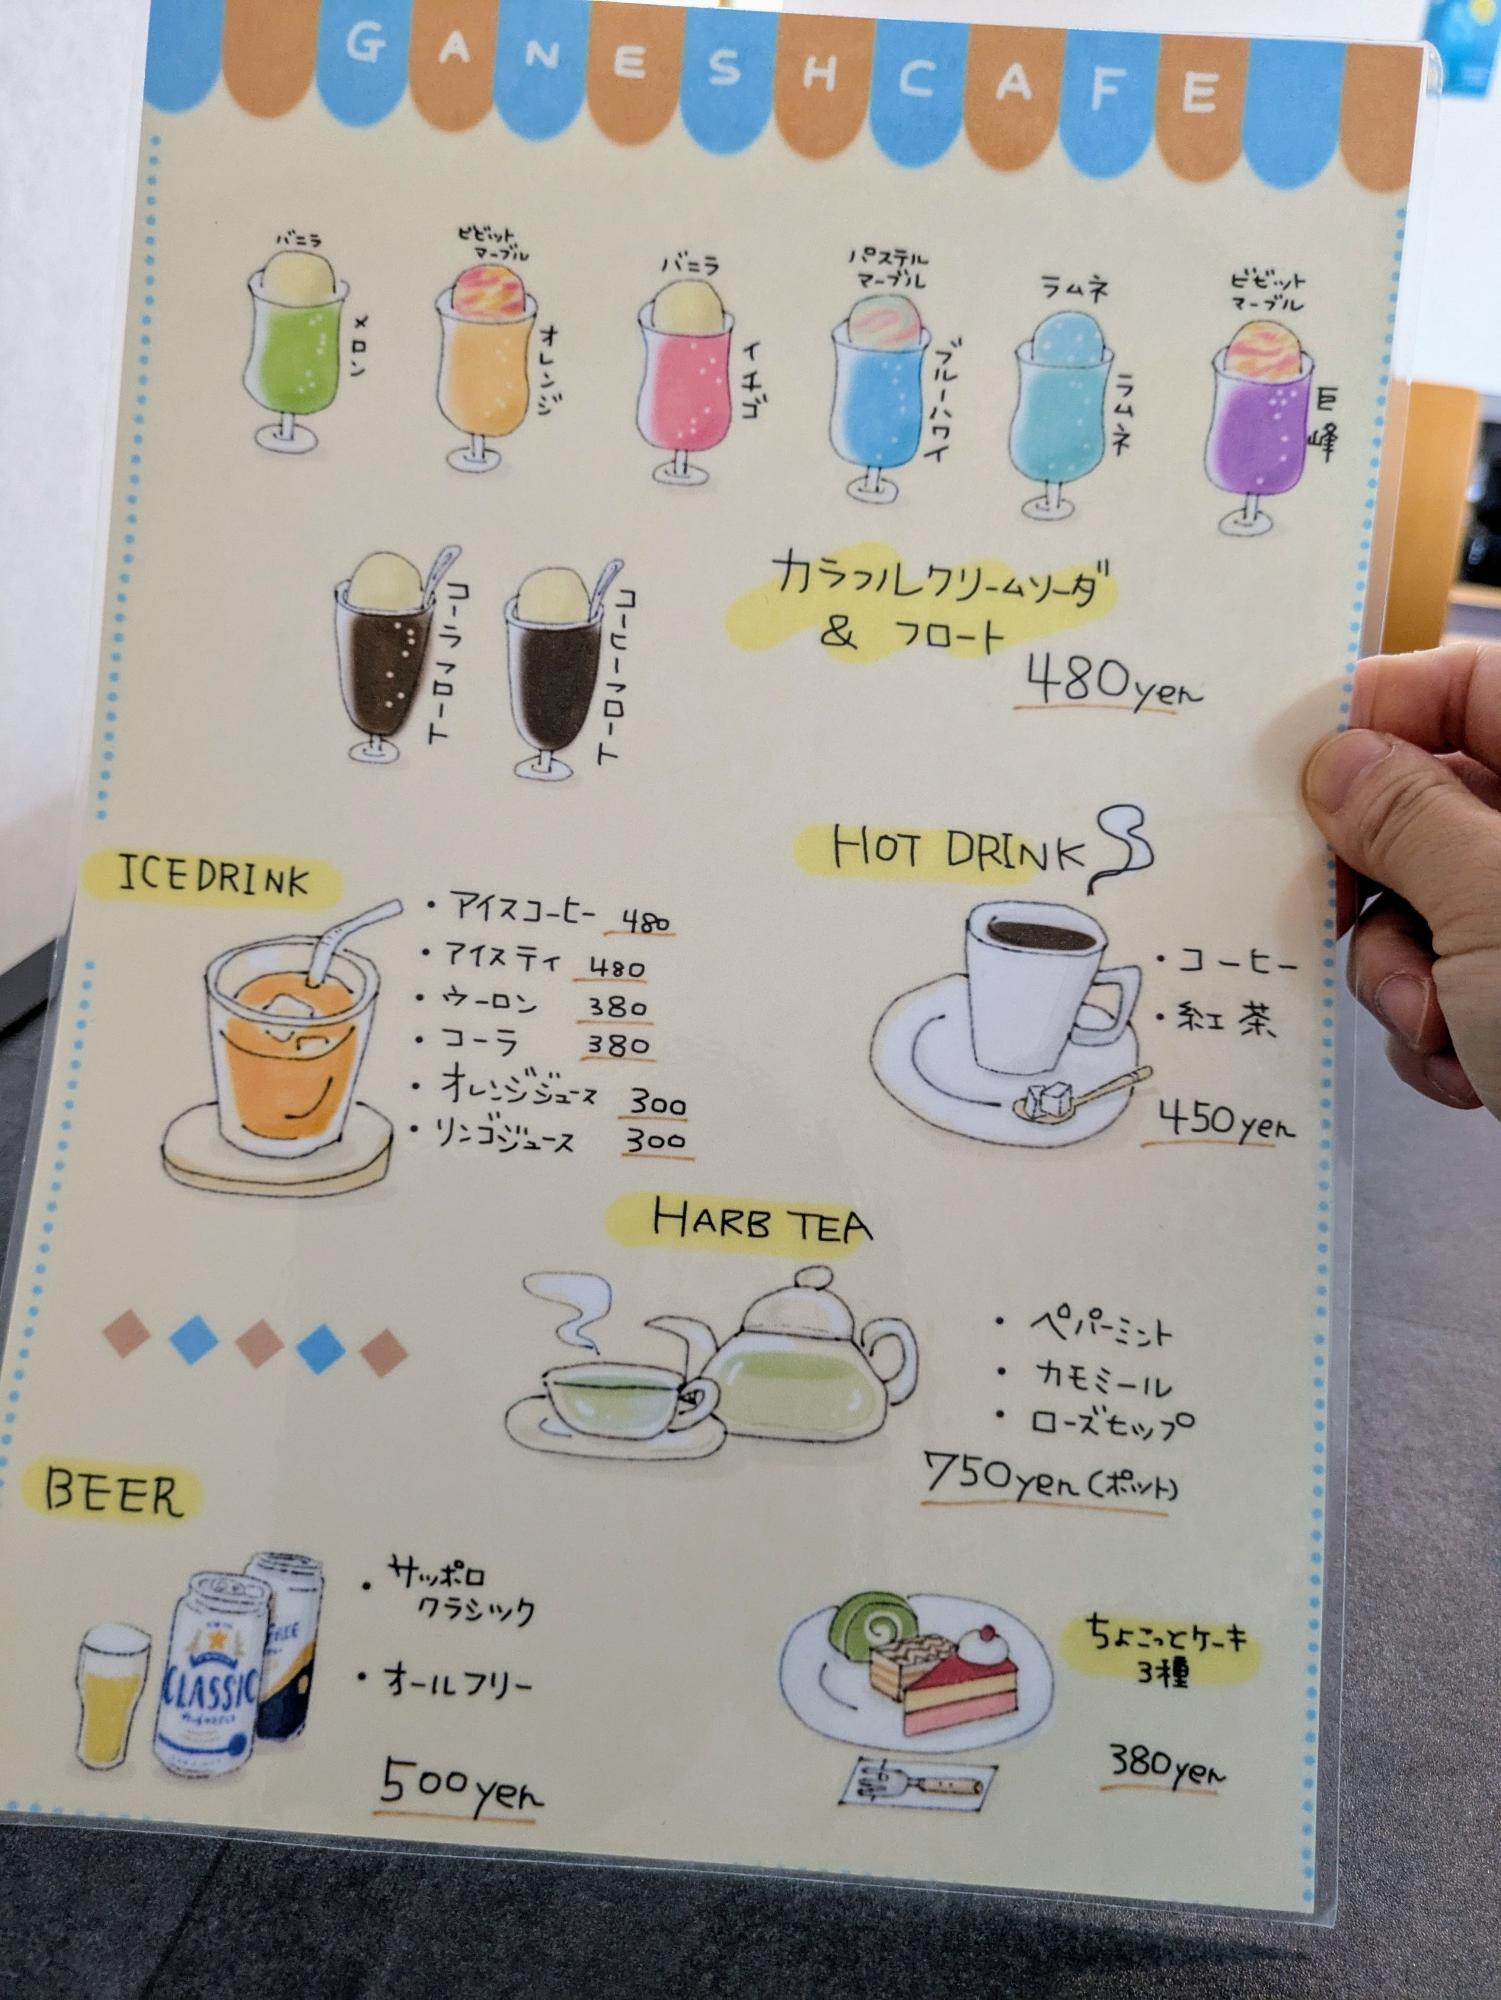 GANESHCAFE
バニラ
メロン
ビビット
マーブル
オレンジ
バニラ
イチゴ
パステル
マーブル
ブルーハワイ
ラムネ
ラムネ
ビビット
マーブル
巨峰
コーラフロート
コーヒーフロート
カラフルクリームソーダ
& フロート
480yen
ICEDRINK
・アイスコーヒー 480
・アイスティ 480
・ウーロン 380
・コーラ 380
・オレンジジュース 300
・リンゴジュース 300
HOT DRINK
・コーヒー
・紅茶
450yen
HARB TEA
・ペパーミント
・カモミール
・ローズヒップ
750yen (ポット)
BEER
CLASSIC
FREE
・サッポロ
クラシック
・オールフリー
500yen
ちょこっとケーキ
3種
380yen